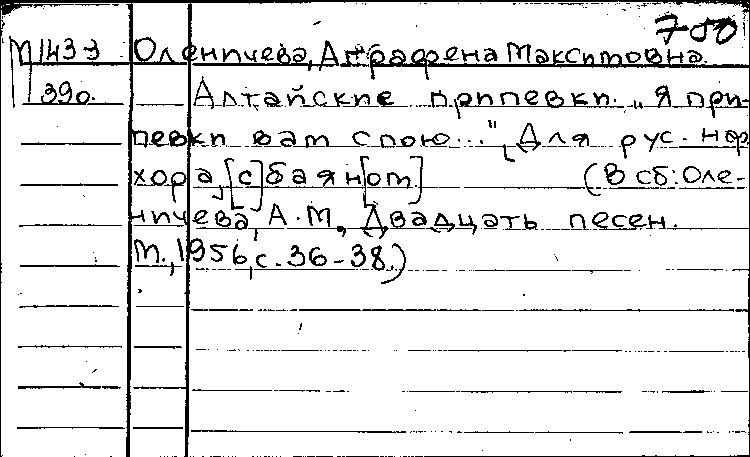 780
М 143 3 Оленичева, Аграфена Максимовна.
390. Алтайские припевки. „Я при-
певки вам спою...", Для рус. нар
хора, [с] баян[ом] (В сб: Оле-
ничева, А.М., Двадцать песен.
М., 1956, с. 36-38.)